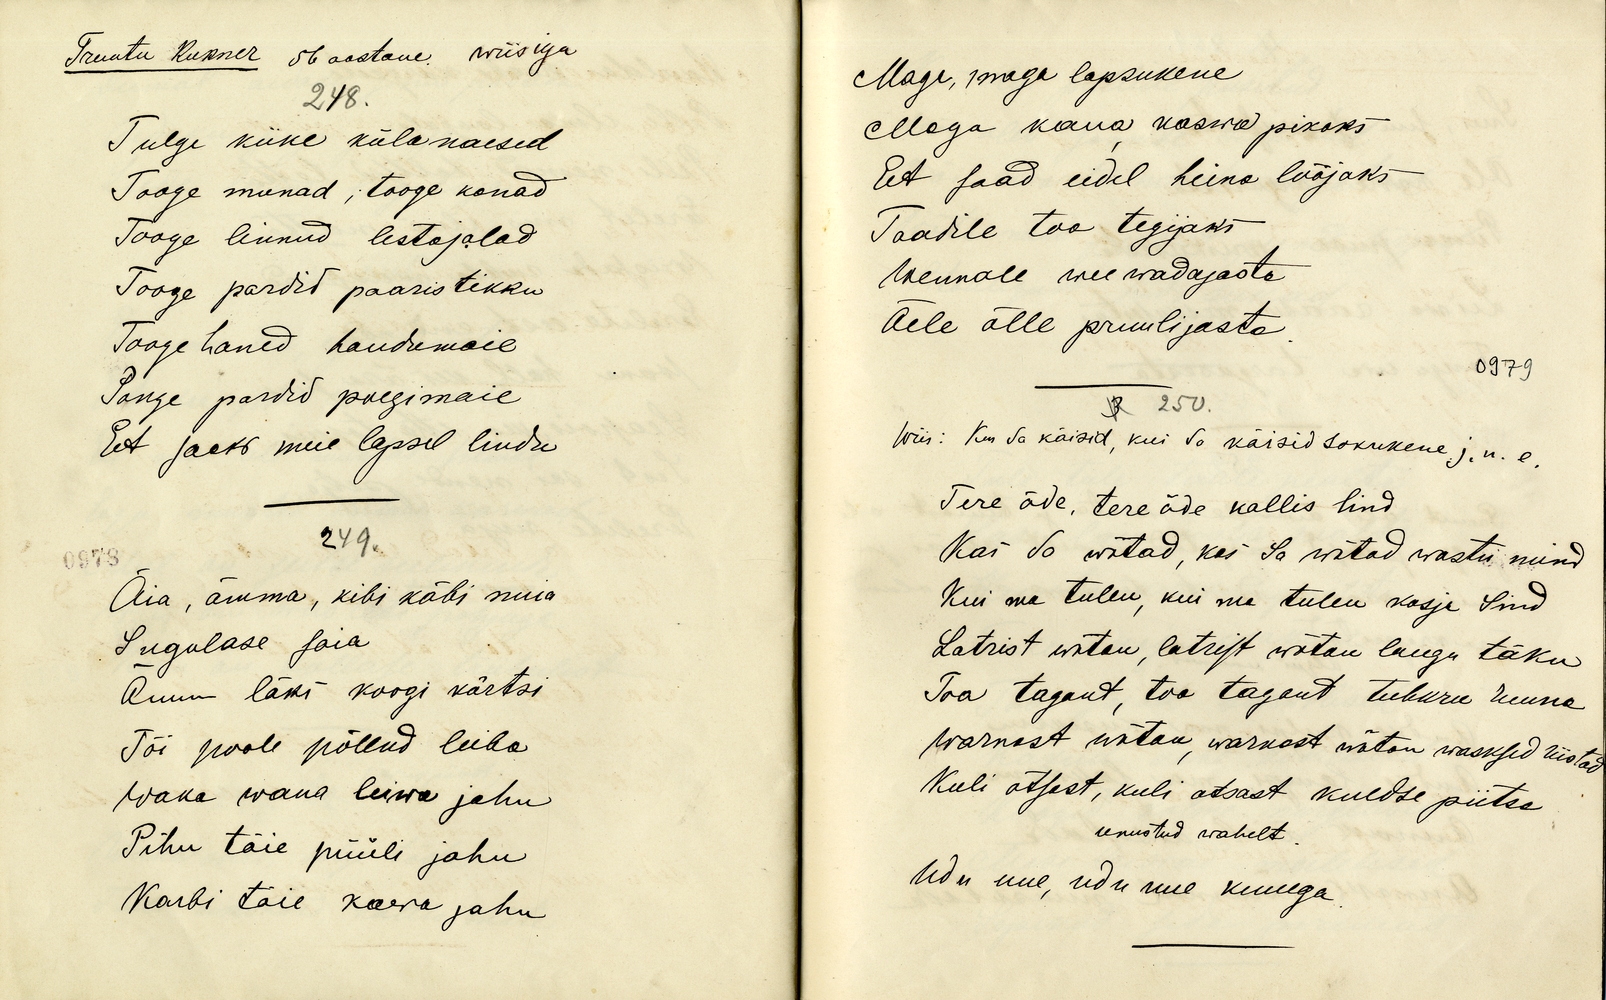 Truutu Kukner 56 aastane. wiisiga
248.
Tulge kiike küla naesed
Tooge munad, tooge kanad
Tooge linnud lestajalad
Tooge pardid paaristikku
Tooge haned haudumaie
Pange pardid poegimaie
Et saaks meie lapsel lindu
249.
0978
Äia, ämma, kibi käbi muia
Sugulase saia
Ämm läks koogi kärtsi
Tõi poole põllud leiba
Waka wana leiwa jahu
Pihu täie püüli jahu
Karbi täie kaera jahu
Maga, maga lapsukene
Maga kaua, kaswa pikaks
Et saad eidel heina lööjaks
Taadile too tegijaks
Wennale wee wadajasta
Äele õlle pruulijasta.
0979
250.
Wiis: Kus sa käisid, kui sa käisid sokukene j. n. e.
Tere õde, tere õde kallis lind
Kas sa wõtad, kas sa wõtad wastu mind
Kui ma tulen, kui ma tulen kosja sind
Latrist wõtan, latrist wõtan laugu täku
Toa tagant, toa tagant tuhkru ruuna
Warnast wõtan, warnast wõtan wasksed riistad
Kuli otsast, kuli otsast kuldse piitsa
unustud wahelt.
Udu uue, udu uue kuuega.